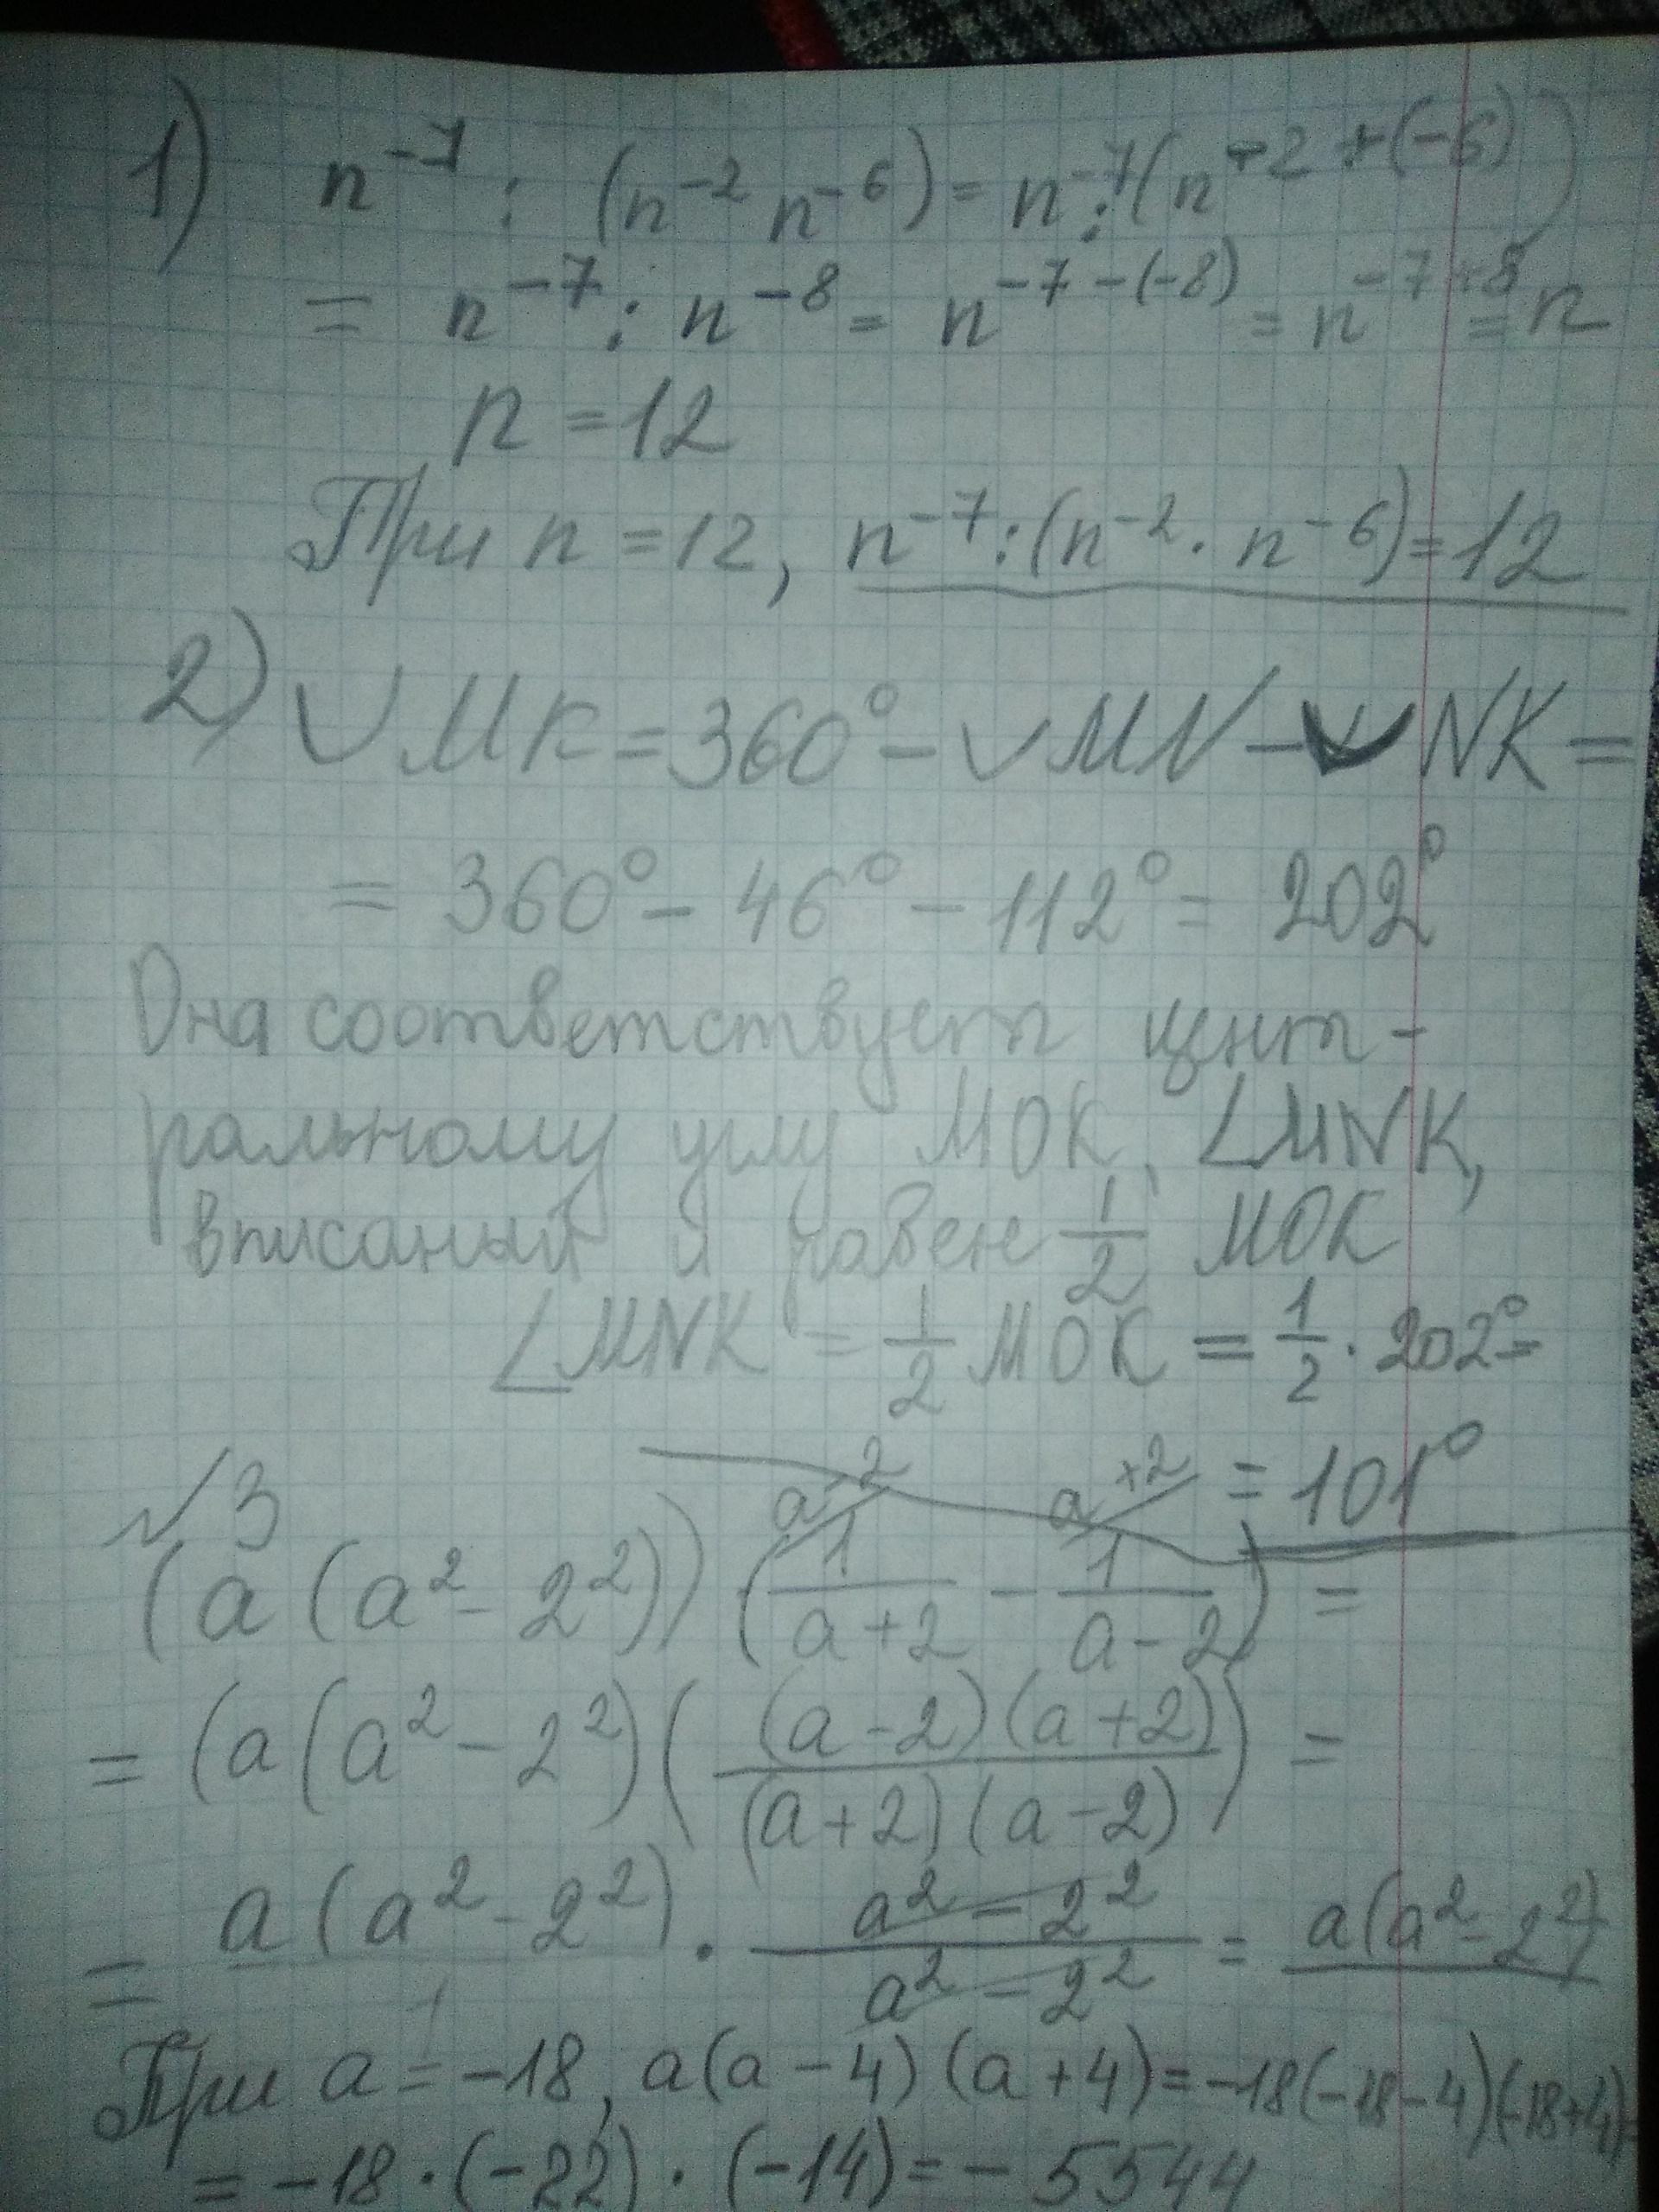 1) n⁻⁷ : (n⁻² n⁻⁶) = n⁻⁷ : (n⁻²⁺⁽⁻⁶⁾)
= n⁻⁷ : n⁻⁸ = n⁻⁷⁻⁽⁻⁸⁾ = n⁻⁷⁺⁸ = n
n = 12
При n = 12, n⁻⁷ : (n⁻² · n⁻⁶) = 12
2) ◡ MK = 360° - ◡ MN - ◡ NK =
= 360° - 46° - 112° = 202°
Она соответствует цент-
ральному углу MOK. ∠MNK,
вписаный и равен 1/2 MOK
∠MNK = 1/2 MOK = 1/2 · 202° =
= 101°
№3
a-2 a+2
(a(a² - 2²)) (1/(a+2) - 1/(a-2)) =
= (a(a² - 2²) ((a-2)(a+2)/(a+2)(a-2)) =
= a(a² - 2²)/1 · (a² - 2²)/(a² - 2²) = a(a² - 2²)
При a = -18, a(a - 4)(a + 4) = -18(-18 - 4)(-18+4) =
= -18 · (-22) · (-14) = - 5544